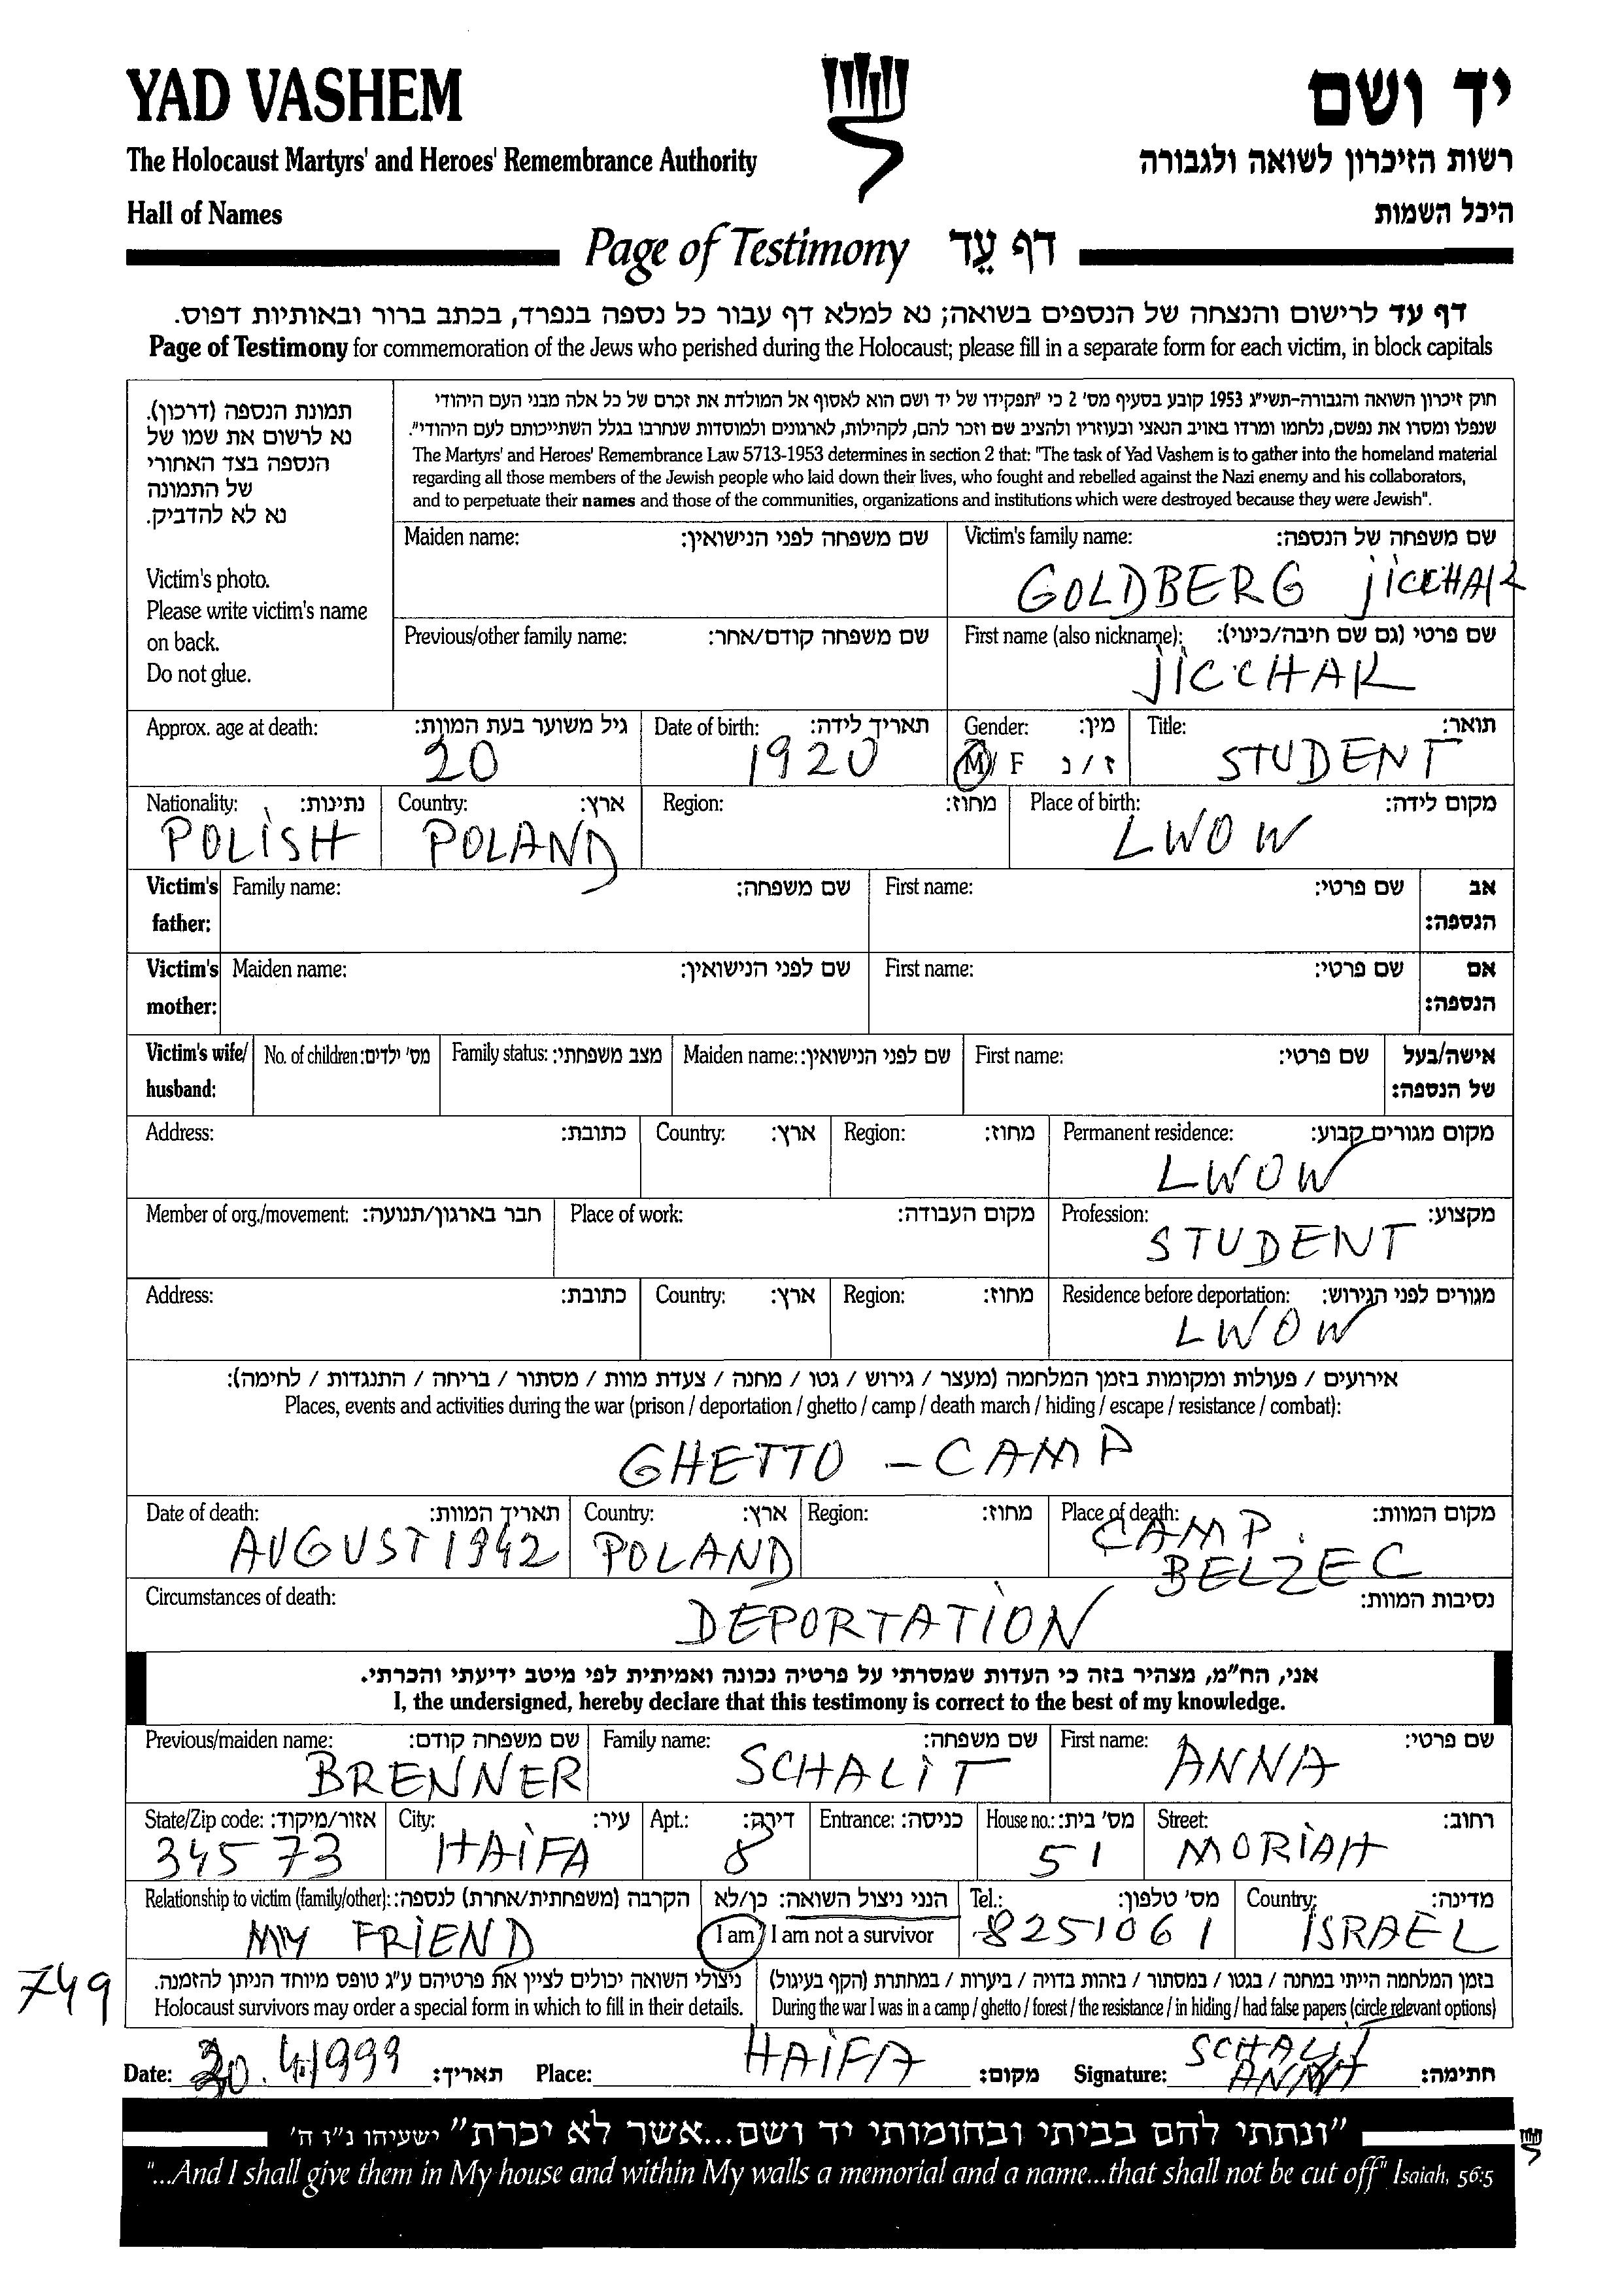 YAD VASHEM
יד ושם
The Holocaust Martyrs' and Heroes' Remembrance Authority
רשות הזיכרון לשואה ולגבורה
Hall of Names
היכל השמות
Page of Testimony דף עֵד
דף עד לרישום והנצחה של הנספים בשואה; נא למלא דף עבור כל נספה בנפרד, בכתב ברור ובאותיות דפוס.
Page of Testimony for commemoration of the Jews who perished during the Holocaust; please fill in a separate form for each victim, in block capitals
תמונת הנספה (דרכון).
נא לרשום את שמו של
הנספה בצד האחורי
של התמונה
נא לא להדביק.
Victim's photo.
Please write victim's name
on back.
Do not glue.
חוק זיכרון השואה והגבורה-תשי"ג 1953 קובע בסעיף מס' 2 כי "תפקידו של יד ושם הוא לאסוף אל המולדת את זכרם של כל אלה מבני העם היהודי
שנפלו ומסרו את נפשם, נלחמו ומרדו באויב הנאצי ובעוזריו ולהציב שם וזכר להם, לקהילות, לארגונים ולמוסדות שנחרבו בגלל השתייכותם לעם היהודי".
The Martyrs' and Heroes' Remembrance Law 5713-1953 determines in section 2 that: "The task of Yad Vashem is to gather into the homeland material
regarding all those members of the Jewish people who laid down their lives, who fought and rebelled against the Nazi enemy and his collaborators,
and to perpetuate their names and those of the communities, organizations and institutions which were destroyed because they were Jewish".
Maiden name: שם משפחה לפני הנישואין: Victim's family name: שם משפחה של הנספה:
GOLDBERG JICCHAK
Previous/other family name: שם משפחה קודם/אחר: First name (also nickname): שם פרטי (גם שם חיבה/כינוי):
JICCHAK
Approx. age at death: גיל משוער בעת המוות: Date of birth: תאריך לידה: Gender: מין: Title: תואר:
20 1920 M/ F ז / נ STUDENT
Nationality: נתינות: Country: ארץ: Region: מחוז: Place of birth: מקום לידה:
POLISH POLAND LWOW
Victim's father: Family name: שם משפחה: First name: שם פרטי: אב הנספה:
Victim's mother: Maiden name: שם לפני הנישואין: First name: שם פרטי: אם הנספה:
Victim's wife/ husband: No. of children: מס' ילדים: Family status: מצב משפחתי: Maiden name: שם לפני הנישואין: First name: שם פרטי: אישה/בעל של הנספה:
Address: כתובת: Country: ארץ: Region: מחוז: Permanent residence: מקום מגורים קבוע:
LWOW
Member of org./movement: חבר בארגון/תנועה: Place of work: מקום העבודה: Profession: מקצוע:
STUDENT
Address: כתובת: Country: ארץ: Region: מחוז: Residence before deportation: מגורים לפני הגירוש:
LWOW
אירועים / פעולות ומקומות בזמן המלחמה (מעצר / גירוש / גטו / מחנה / צעדת מוות / מסתור / בריחה / התנגדות / לחימה):
Places, events and activities during the war (prison / deportation / ghetto / camp / death march / hiding / escape / resistance / combat):
GHETTO - CAMP
Date of death: תאריך המוות: Country: ארץ: Region: מחוז: Place of death: מקום המוות:
AUGUST 1942 POLAND CAMP
BELZEC
Circumstances of death: נסיבות המוות:
DEPORTATION
אני, הח"מ, מצהיר בזה כי העדות שמסרתי על פרטיה נכונה ואמיתית לפי מיטב ידיעתי והכרתי.
I, the undersigned, hereby declare that this testimony is correct to the best of my knowledge.
Previous/maiden name: שם משפחה קודם: Family name: שם משפחה: First name: שם פרטי:
BRENNER SCHALIT ANNA
State/Zip code: אזור/מיקוד: City: עיר: Apt.: דירה: Entrance: כניסה: House no.: מס' בית: Street: רחוב:
34573 HAIFA 8 51 MORIAH
Relationship to victim (family/other): הקרבה (משפחתית/אחרת) לנספה: הנני ניצול השואה: כן/לא Tel.: מס' טלפון: Country: מדינה:
MY FRIEND I am / I am not a survivor 8251061 ISRAEL
749
ניצולי השואה יכולים לציין את פרטיהם ע"ג טופס מיוחד הניתן להזמנה. בזמן המלחמה הייתי במחנה / בגטו / במסתור / בזהות בדויה / ביערות / במחתרת (הקף בעיגול)
Holocaust survivors may order a special form in which to fill in their details. During the war I was in a camp / ghetto / forest / the resistance / in hiding / had false papers (circle relevant options)
SCHALIT
Date: 20.4.1999 תאריך: Place: HAIFA מקום: Signature: ANNA חתימה:
"ונתתי להם בביתי ובחומותי יד ושם...אשר לא יכרת" ישעיהו נ"ו ה'
"...And I shall give them in My house and within My walls a memorial and a name...that shall not be cut off" Isaiah, 56:5